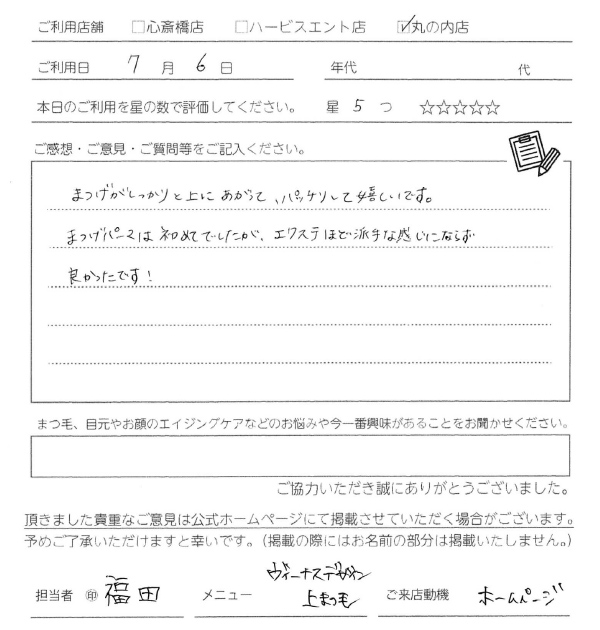 ご利用店舗 □心斎橋店 □ハービスエント店 ☑丸の内店
ご利用日 7 月 6 日 年代 代
本日のご利用を星の数で評価してください。 星 5 つ ☆☆☆☆☆
ご感想・ご意見・ご質問等をご記入ください。
まつげがしっかりと上にあがって、パッチリして嬉しいです。
まつげパーマは初めてでしたが、エクステほど派手な感じにならず
良かったです！
まつ毛、目元やお顔のエイジングケアなどのお悩みや今一番興味があることをお聞かせください。
ご協力いただき誠にありがとうございました。
頂きました貴重なご意見は公式ホームページにて掲載させていただく場合がございます。
予めご了承いただけますと幸いです。（掲載の際にはお名前の部分は掲載いたしません。）
ヴィーナスデザイン
担当者 ㊞ 福田 メニュー 上まつ毛 ご来店動機 ホームページ